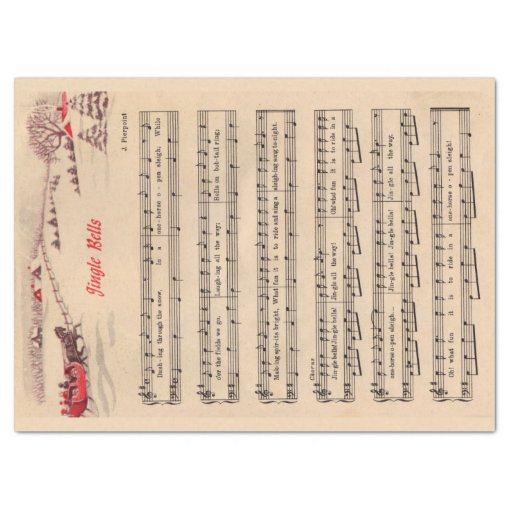 Jingle Bells
J. Pierpoint
Dash-ing through the snow, In a one-horse o-pen sleigh; While
o'er the fields we go, Laugh-ing all the way; Bells on bob-tail ring;
Mak-ing spir-its bright, What fun it is to ride and sing a sleigh-ing song to-night.
Chorus
Jin-gle bells! Jin-gle bells! Jin-gle all the way! Oh! what fun it is to ride in a
one-horse o-pen sleigh... Jin-gle bells! Jin-gle bells! Jin-gle all the way.
Oh! what fun it is to ride in a one-horse o-pen sleigh!